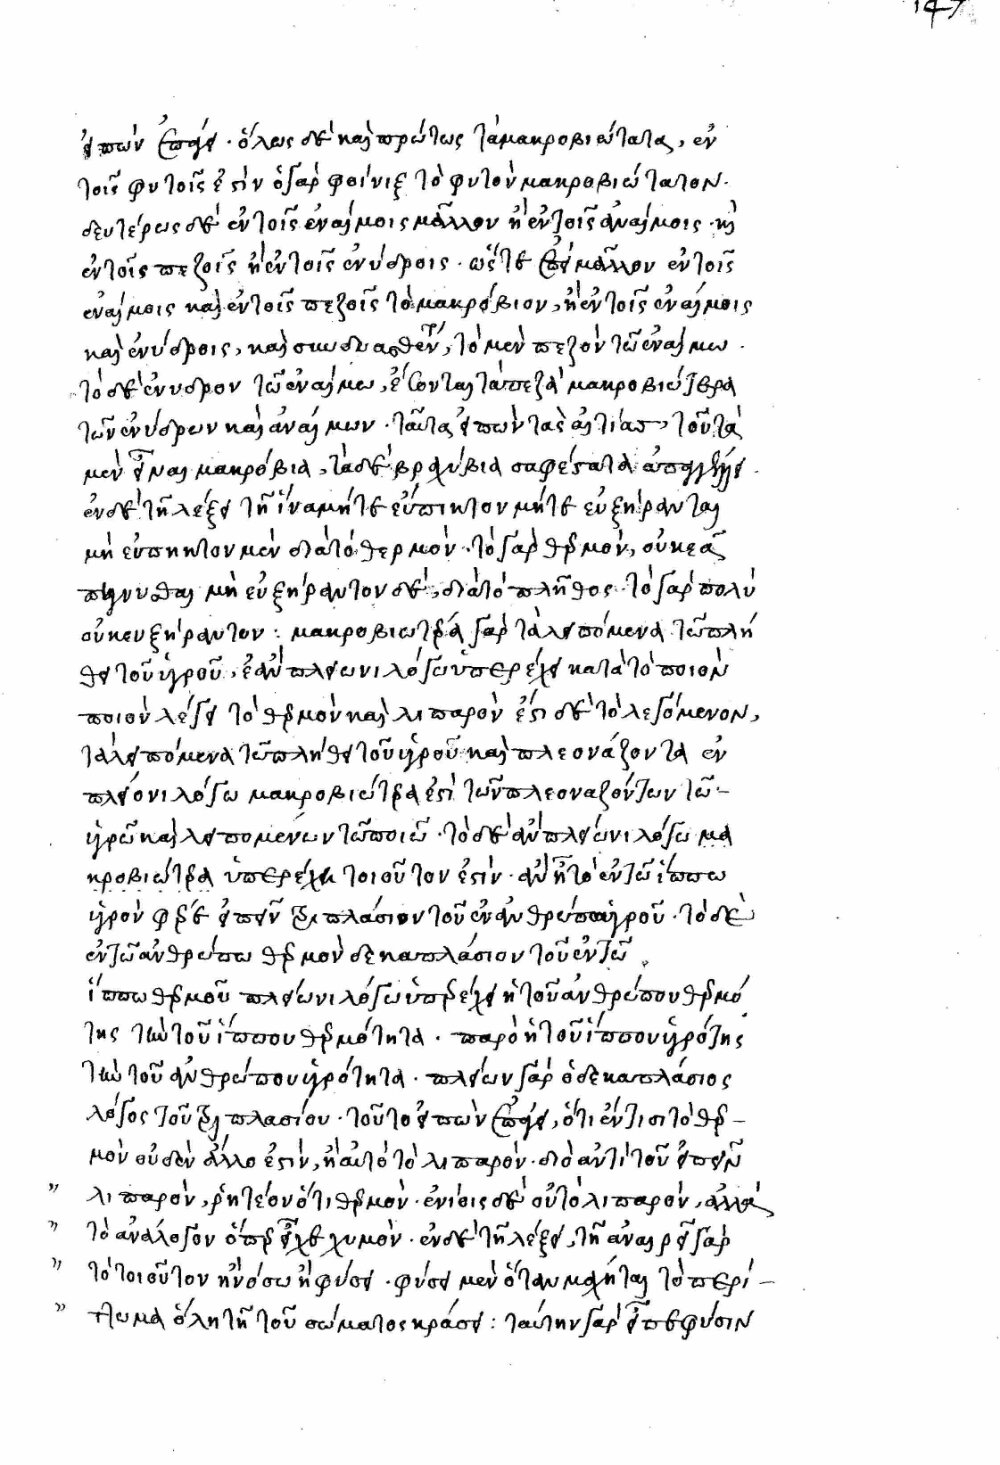 147
εἰπὼν ἐπάγει · ὅλως δὲ καὶ πρώτως τὰ μακροβιώτατα, ἐν
τοῖς φυτοῖς ἐστίν · ὁ γὰρ φοίνιξ τὸ φυτὸν μακροβιώτατον ·
δευτέρως δὲ ἐν τοῖς ἐναίμοις μᾶλλον ἢ ἐν τοῖς ἀναίμοις · καὶ
ἐν τοῖς πεζοῖς ἢ ἐν τοῖς ἐνύδροις · ὥστε ἐπεὶ μᾶλλον ἐν τοῖς
ἐναίμοις καὶ ἐν τοῖς πεζοῖς τὸ μακρόβιον, ἢ ἐν τοῖς ἐναίμοις
καὶ ἐνύδροις, καὶ συνδυασθὲν, τὸ μὲν πεζὸν τῷ ἐναίμω ·
τὸ δὲ ἔνυδρον τῷ ἐναίμω, ἔσονται τὰ πεζὰ μακροβιώτερα
τῶν ἐνύδρων καὶ ἀναίμων · ταῦτα εἰπὼν τὰς αἰτίας, τοῦ τὰ
μὲν εἶναι μακρόβια, τὰ δὲ βραχύβια σαφέστατα ἀπαγγέλλει ·
ἐν δὲ τῇ λέξει τῇ ἵνα μήτε εὔπηκτον μήτε εὐξήραντον
μὴ εὔπηκτον μὲν διὰ τὸ θερμόν · τὸ γὰρ θερμὸν, οὐκ ἐᾷ
πήγνυσθαι μὴ εὐξήραντον δὲ, διὰ τὸ πλῆθος · τὸ γὰρ πολὺ
οὐκ εὐξήραντον : μακροβιώτερα γὰρ τὰ λειπόμενα τῷ πλή
θει τοῦ ὑγροῦ, ἐὰν πλείωνι λόγω ὑπερέχει κατὰ τὸ ποιὸν
ποιὸν λέγει τὸ θερμὸν καὶ λιπαρὸν ἔστι δὲ τὸ λεγόμενον,
τὰ λειπόμενα τῷ πλήθει τοῦ ὑγροῦ καὶ πλεονάζοντα ἐν
πλείονι λόγω μακροβιώτερα ἐστὶ τῶν πλεοναζόντων τῷ
ὑγρῷ καὶ λειπομένων τῷ ποιῷ · τὸ δὲ ἂν πλείωνι λόγω μα
κροβιώτερα ὑπερέχει τοιοῦτον ἐστίν · ἂν ᾖ τὸ ἐν τῷ ἵππω
ὑγρὸν φέρε εἰπεῖν τριπλάσιον τοῦ ἐν ἀνθρώπω ὑγροῦ · τὸ δὲ
ἐν τῷ ἀνθρώπω θερμὸν δεκαπλάσιον τοῦ ἐν τῷ
ἵππω θερμοῦ πλείωνι λόγω ὑπερέχει ἡ τοῦ ἀνθρώπου θερμό
της τὴν τοῦ ἵππου θερμότητα · παρὸ ἡ τοῦ ἵππου ὑγρότης
τὴν τοῦ ἀνθρώπου ὑγρότητα · πλείων γὰρ ὁ δεκαπλάσιος
λόγος τοῦ τριπλασίου · τοῦτο εἰπὼν ἐπάγει, ὅτι ἔν τισι τὸ θερ-
μὸν οὐδὲν ἄλλο ἐστὶν, ἢ αὐτὸ τὸ λιπαρόν · διὸ ἀντὶ τοῦ εἰπεῖν
λιπαρὸν, ῥητέον ὅτι θερμόν · ἐνίοις δὲ οὐ τὸ λιπαρὸν, ἀλλὰ
τὸ ἀνάλογον ὅπερ εἶχε χυμόν · ἐν δὲ τῇ λέξει, τῇ ἀναιρεῖ γὰρ
τὸ τοιοῦτον ἢ νόσω ἢ φύσει · φύσει μὲν ὅταν μάχηται τὸ περί-
τωμα ὅλη τῇ τοῦ σώματος κράσει : ταύτην γὰρ εἶπε φύσιν